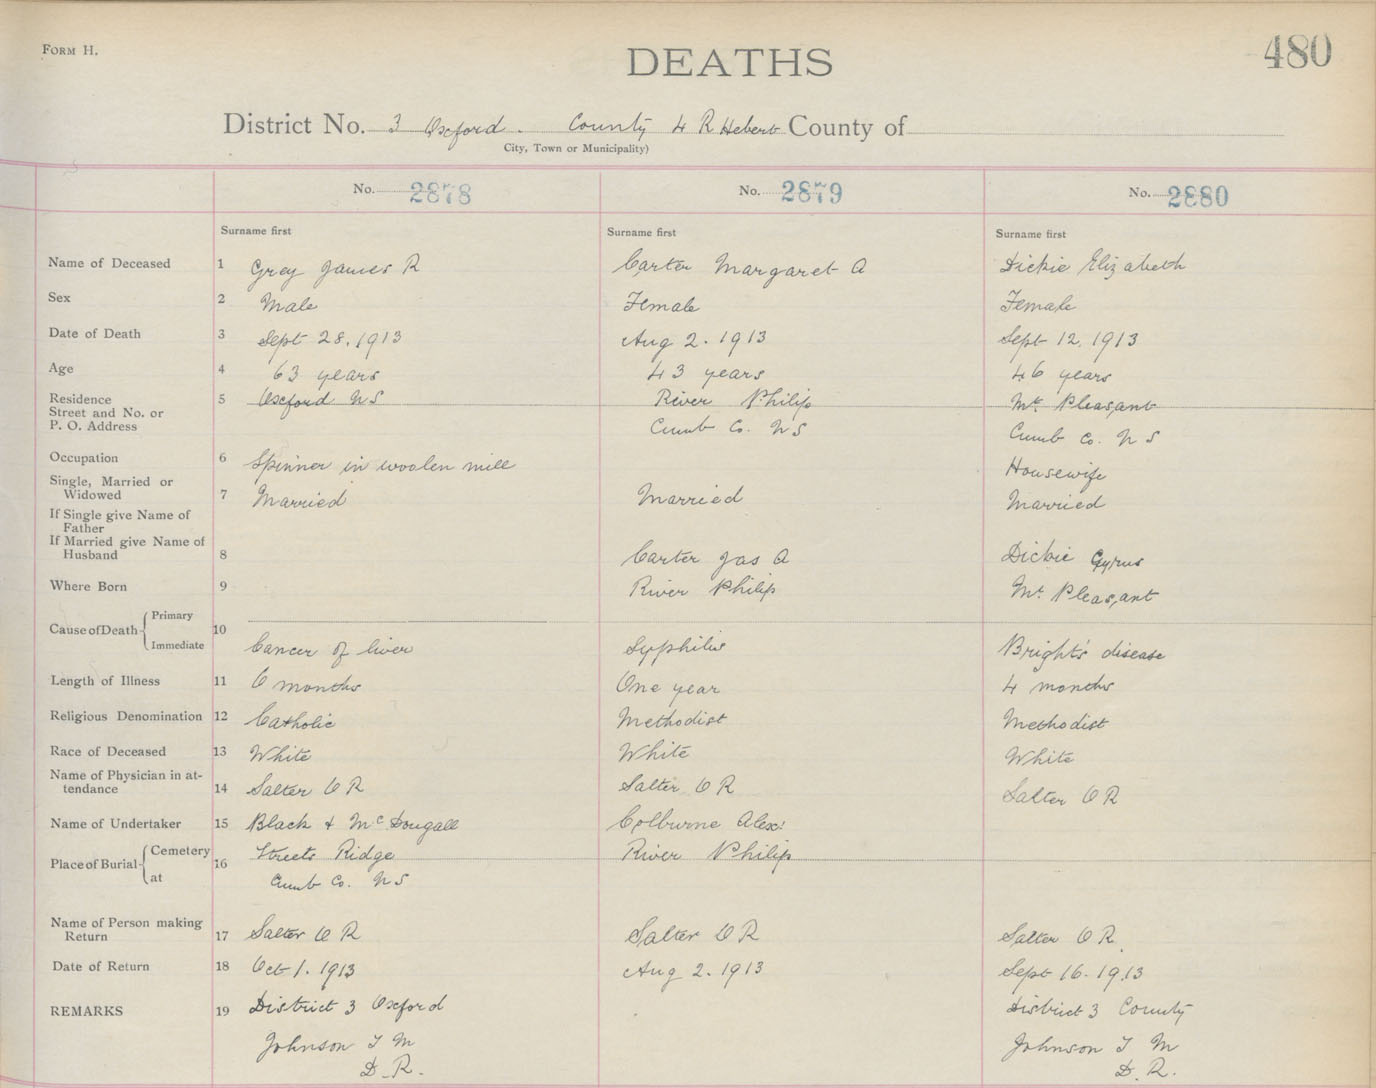 FORM H.
DEATHS
480
District No. 3 Oxford. County 4 R Hebert County of
City, Town or Municipality)
No. 2878 No. 2879 No. 2880
Surname first Surname first Surname first
Name of Deceased 1 Grey James R Carter Margaret A Dickie Elizabeth
Sex 2 Male Female Female
Date of Death 3 Sept 28. 1913 Aug 2. 1913 Sept 12. 1913
Age 4 63 years 43 years 46 years
Residence 5 Oxford NS River Philip Mt. Pleasant
Street and No. or
P. O. Address Cumb Co. NS Cumb Co. NS
Occupation 6 Spinner in woolen mill Housewife
Single, Married or
Widowed 7 Married Married Married
If Single give Name of
Father
If Married give Name of
Husband 8 Carter Jas A Dickie Cyrus
Where Born 9 River Philip Mt. Pleasant
Cause of Death Primary
10
Immediate Cancer of liver Syphilis Bright's disease
Length of Illness 11 6 months One year 4 months
Religious Denomination 12 Catholic Methodist Methodist
Race of Deceased 13 White White White
Name of Physician in at-
tendance 14 Salter O R Salter O R Salter O R
Name of Undertaker 15 Black & McDougall Colburne Alex:
Place of Burial Cemetery 16 Streets Ridge River Philip
at Cumb Co. NS
Name of Person making
Return 17 Salter O R Salter O R Salter O R.
Date of Return 18 Oct 1. 1913 Aug 2. 1913 Sept 16. 1913
REMARKS 19 District 3 Oxford District 3 County
Johnson T M Johnson T M
D. R. D. R.